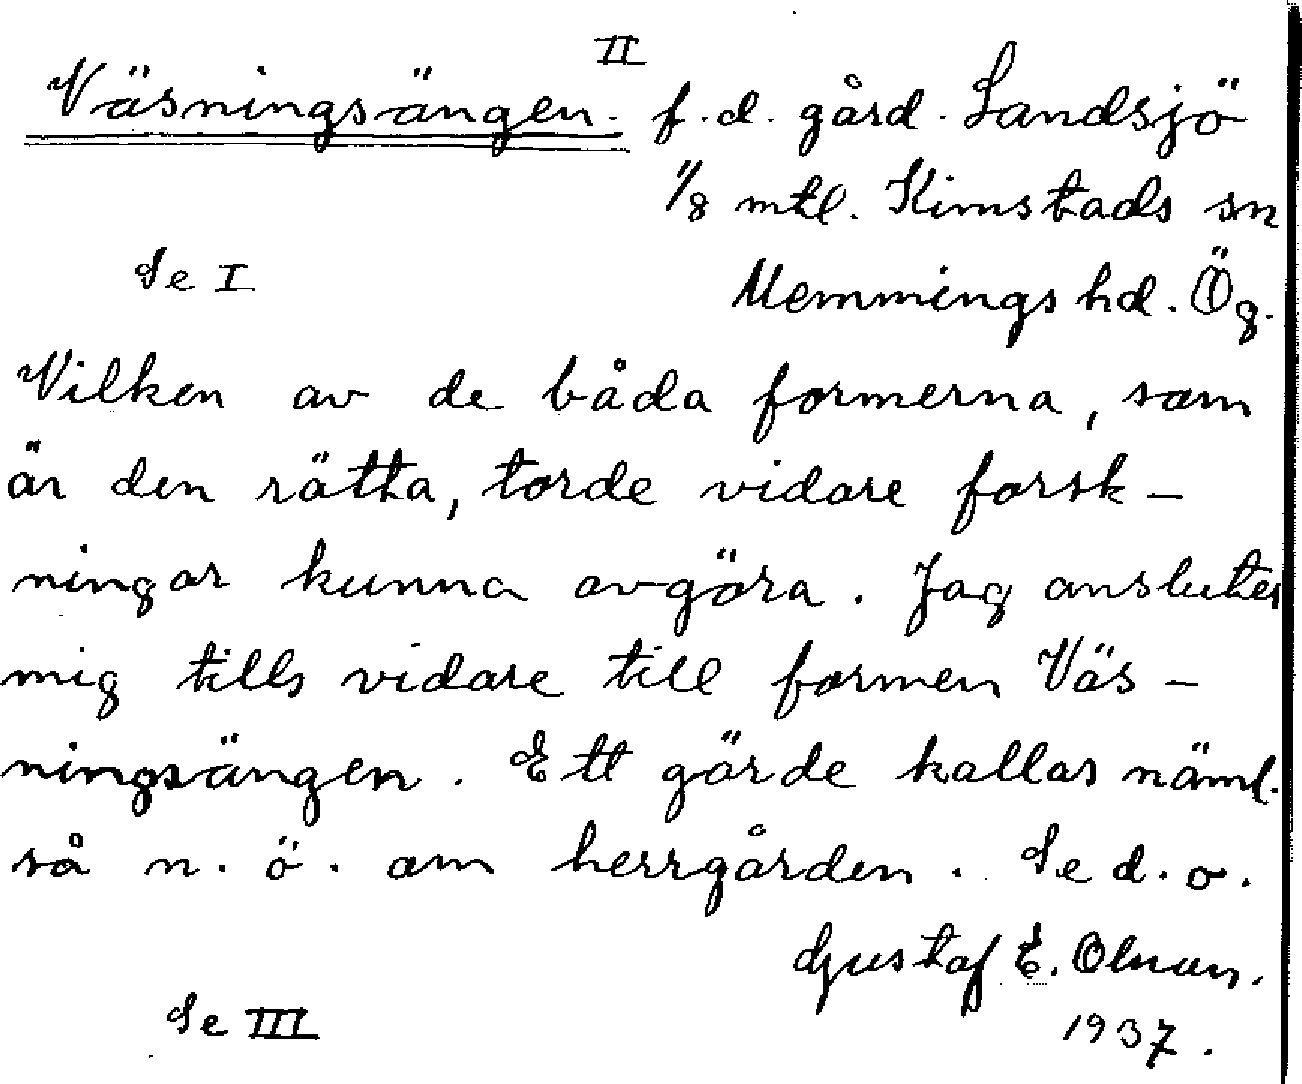 II
Väsningsängen. f.d. gård. Landsjö
1/8 mtl. Kimstads sn
Se I Memmings hd. Ög.
Vilken av de båda formerna, som
är den rätta, torde vidare forsk-
ningar kunna avgöra. Jag ansluter
mig tills vidare till formen Väs-
ningsängen. Ett gärde kallas näml.
så n. ö. om herrgården. Se d. o.
Gustaf E. Olman.
Se III 1937.